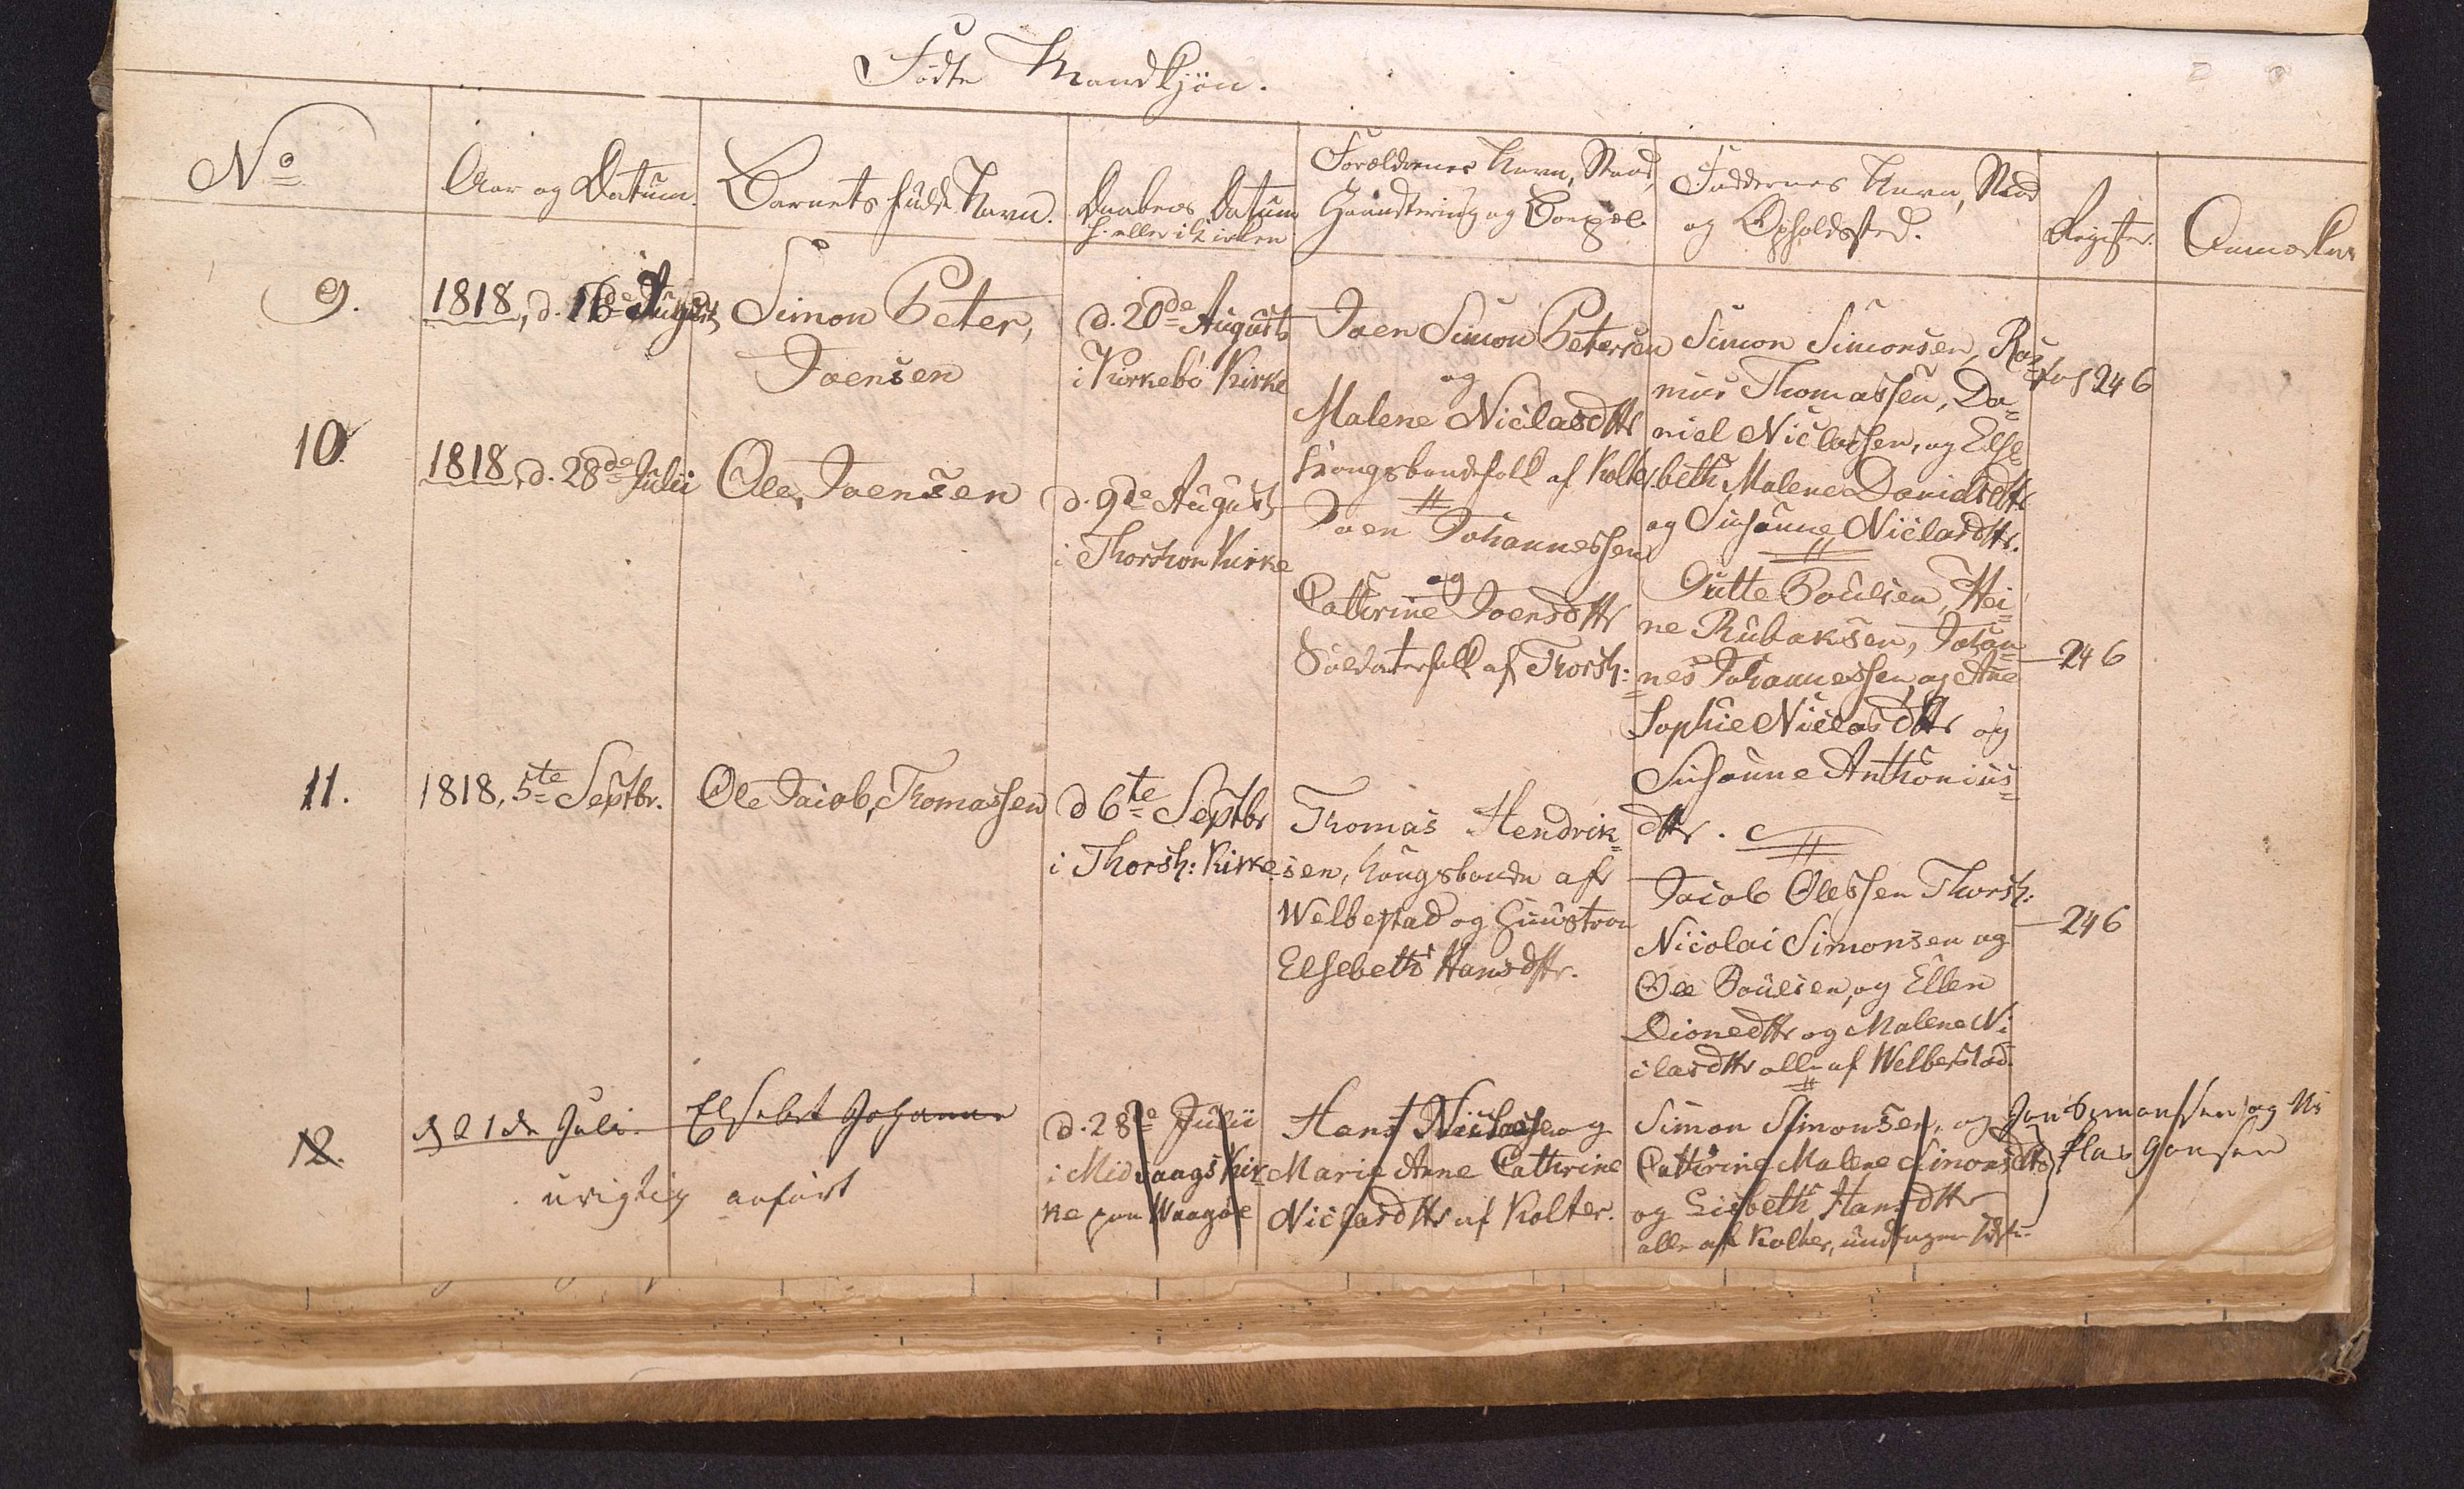 Födte Mandkjön.
No
Aar og Datum.
Barnets fulde Navn.
Daabens Datum
h. eller i Kirken
Forældrenes Navn, Stand,
Haandtering og Bopæl.
Faddernes Navn, Stand
og Opholdssted.
Register.
Anmærkn
9.
1818, d. 16de August
Simon Peter,
Joensen
d. 20de Augusts
i Kirkebö Kirke
Joen Simon Petersen
og
Malene Niclasdttr
Kongsbondefolk af Kolter
Simon Simonsen, Ras=
mus Thomassen, Da=
niel Niclassen, og Else
beth Malene Danielsdttr
og Susanne Niclasdttr.
Fol 246
10.
1818, d. 28de Julii
Ole, Joensen
d. 9de August
i Thorshon Kirke
Joen Johannessen
og
Cathrine Joensdttr
Soldaterfolk af Thorsh:
Gutte Poulsen, Hei=
ne Rubaksen, Johan=
nes Johannessen og Ane
Sophie Niclasdttr og
Susanne Anthonius=
dttr.
246
11.
1818, 5te Septbr.
Ole Jacob, Thomassen
d 6te Septbr
i Thorsh: Kirke
Thomas Hendrik=
sen, Kongsbonde af
Welbestad og Hustroe
Elsebeth Hansdttr.
Jacob Olessen Thorsh:
Nicolai Simonsen og
Ole Poulsen, og Ellen
Dionedttr og Malene Ni
clasdttr alle af Welbestad.
246
12.
d 21de Juli
Elsebet Johanne
urigtig anført
d. 28de Julii
i Midvaags Kir
ke paa Waagöe
Hans Niclassen og
Marie Anne Cathrine
Niclasdttr af Kolter.
Simon Simonsen, og Jon Simonssen og Ni
Cathrine Malene Simonsdttr klas Jonsen
og Lisbeth Hansdttr
alle af Kolter, undtagen